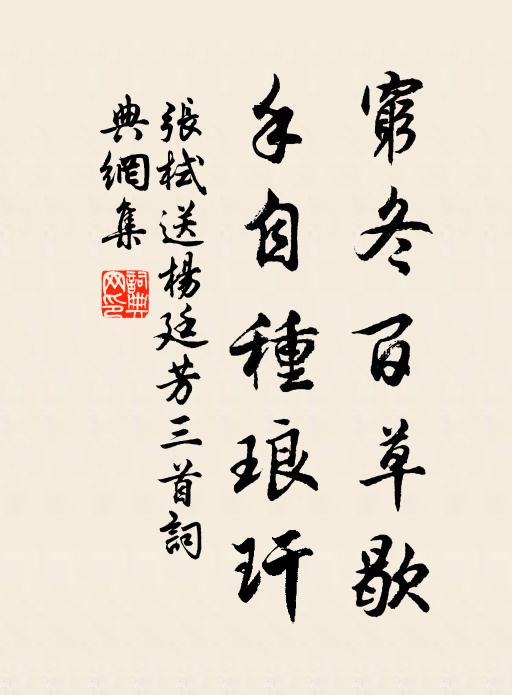 窮冬百草歇
手自種琅玕
張栻送楊廷芳三首詞
典網集
詞典網印